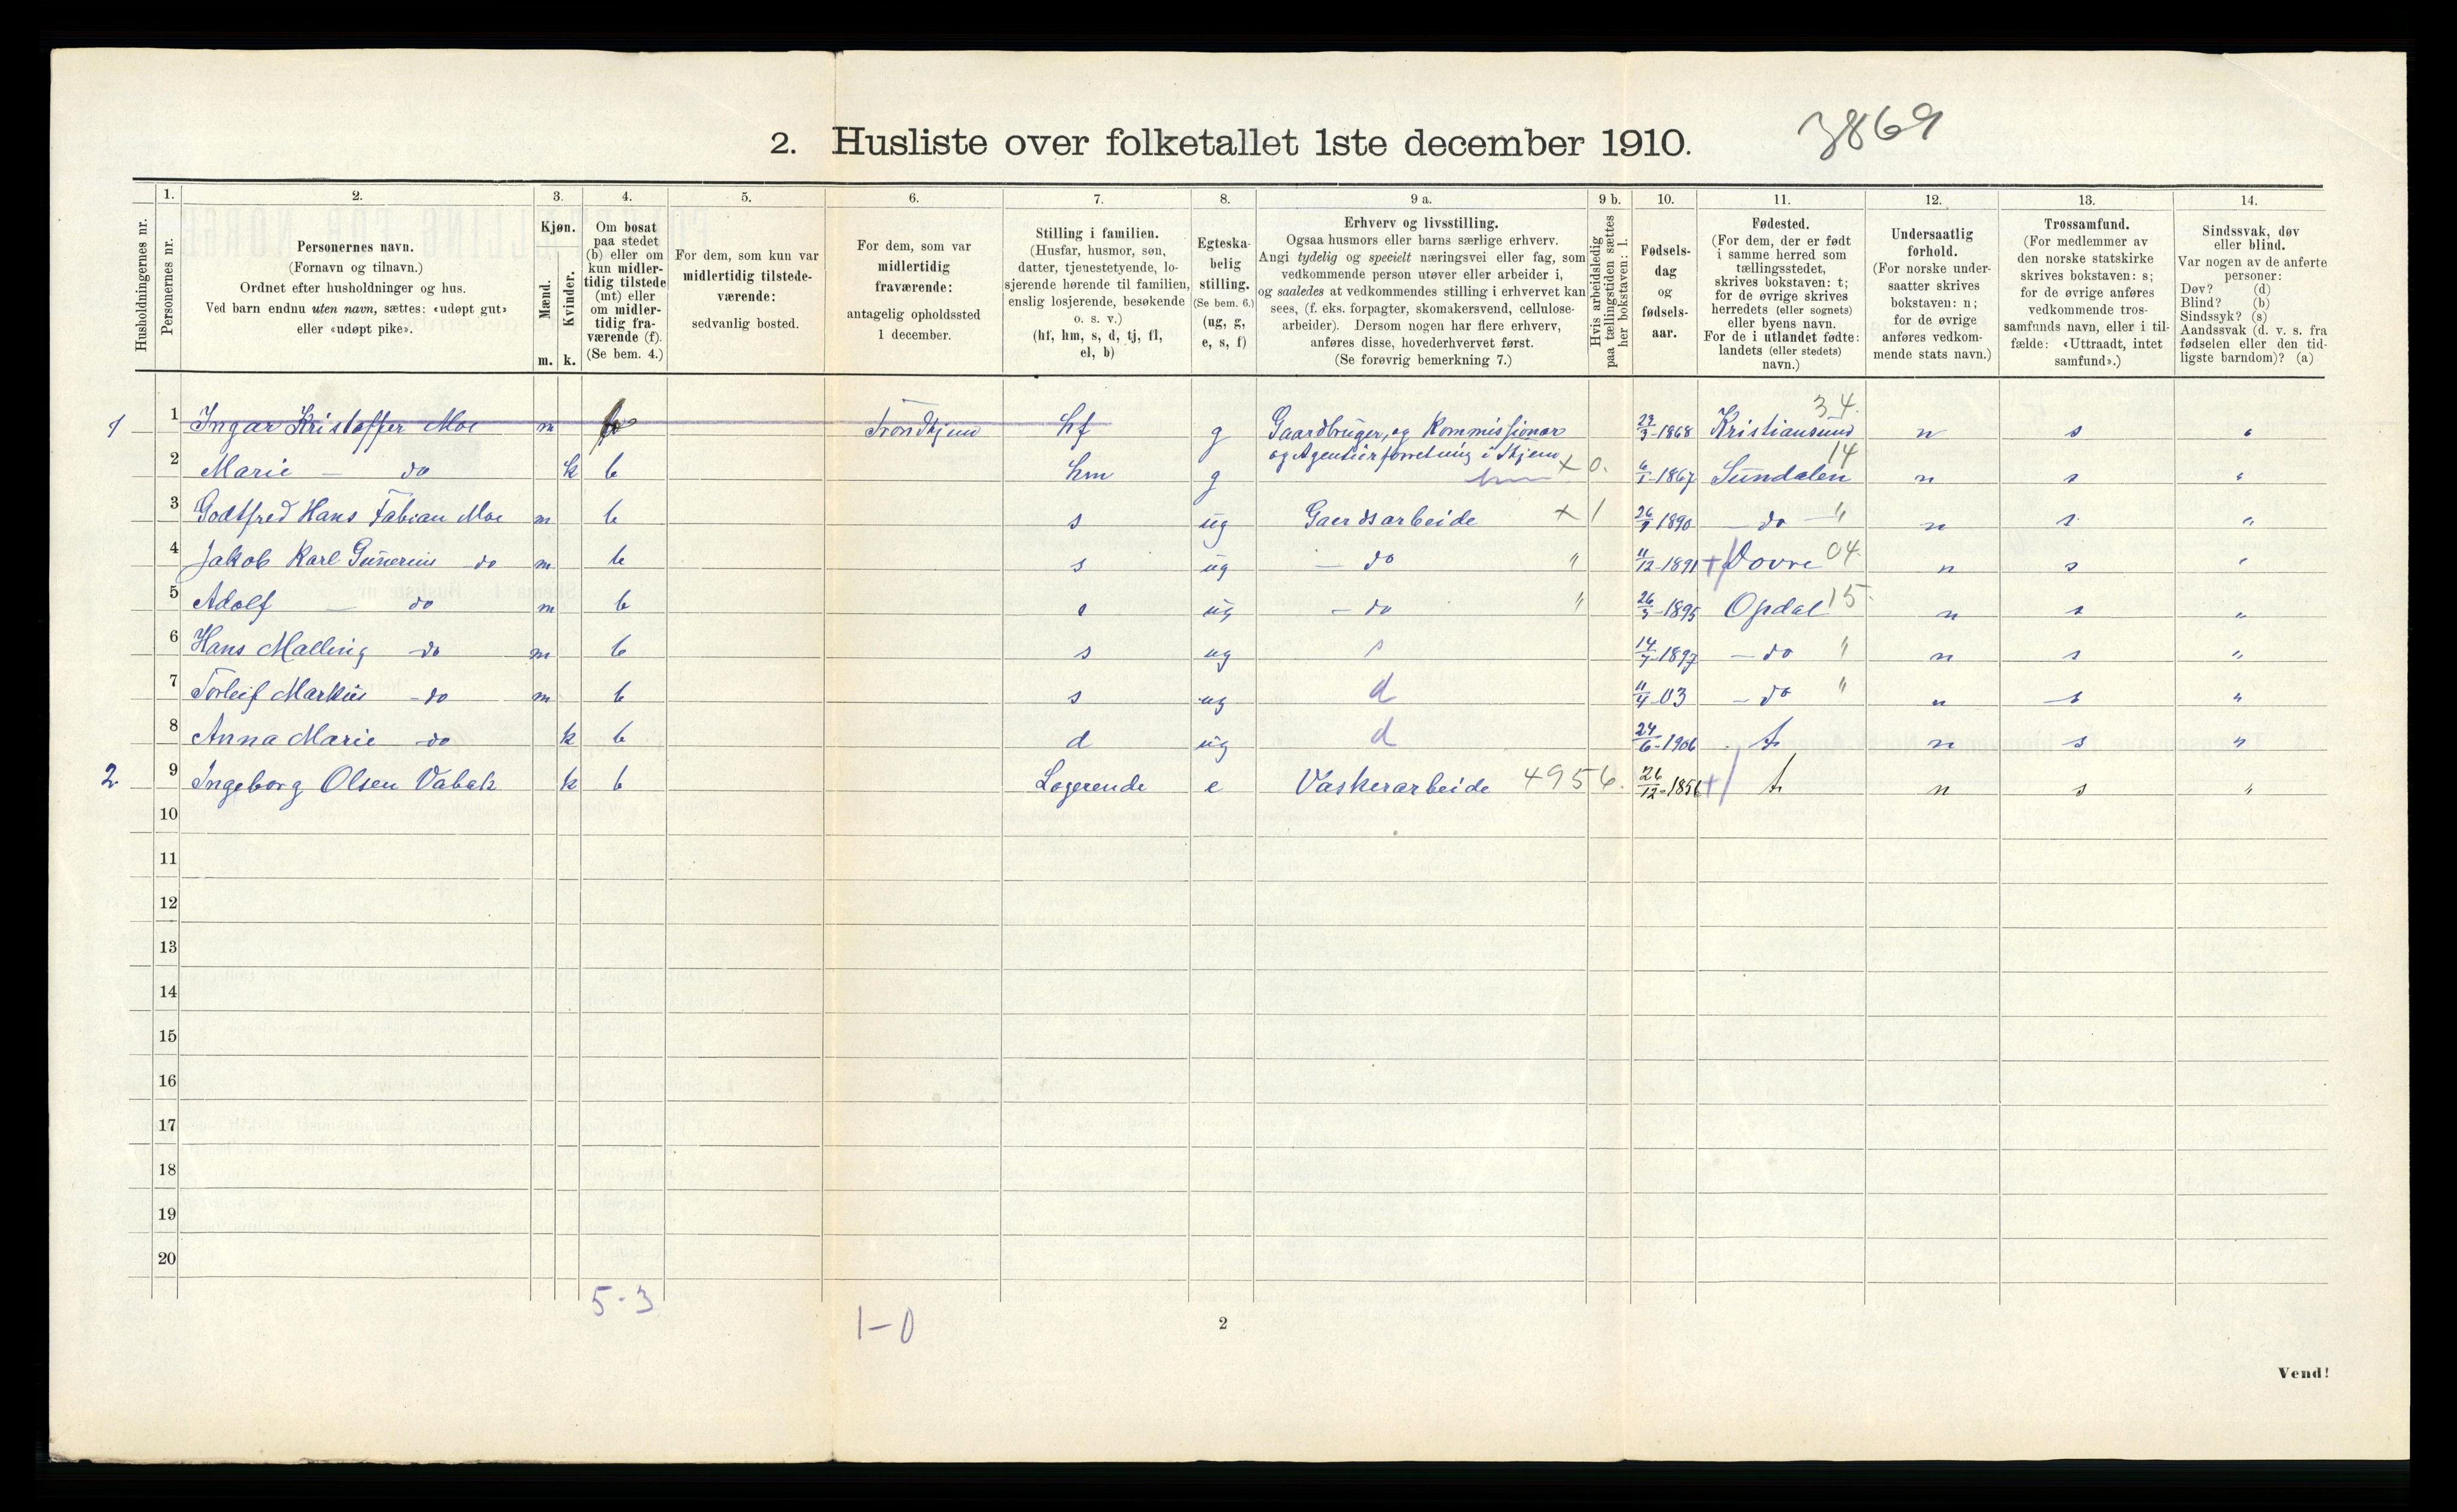 2. Husliste over folketallet 1ste december 1910. 3869
Husholdningernes nr.
1. Personernes nr.
2. Personernes navn.
(Fornavn og tilnavn.)
Ordnet efter husholdninger og hus.
Ved barn endnu uten navn, sættes: «udøpt gut»
eller «udøpt pike».
3. Kjøn.
Mænd. m.
Kvinder. k.
4. Om bosat
paa stedet
(b) eller om
kun midler-
tidig tilstede
(mt) eller
om midler-
tidig fra-
værende (f).
(Se bem. 4.)
5. For dem, som kun var
midlertidig tilstede-
værende:
sedvanlig bosted.
6. For dem, som var
midlertidig
fraværende:
antagelig opholdssted
1 december.
7. Stilling i familien.
(Husfar, husmor, søn,
datter, tjenestetyende, lo-
sjerende hørende til familien,
enslig losjerende, besøkende
o. s. v.)
(hf, hm, s, d, tj, fl,
el, b)
8. Egteska-
belig
stilling.
(Se bem. 6.)
(ug, g,
e, s, f)
9 a. Erhverv og livsstilling.
Ogsaa husmors eller barns særlige erhverv.
Angi tydelig og specielt næringsvei eller fag, som
vedkommende person utøver eller arbeider i,
og saaledes at vedkommendes stilling i erhvervet kan
sees, (f. eks. forpagter, skomakersvend, cellulose-
arbeider). Dersom nogen har flere erhverv,
anføres disse, hovederhvervet først.
(Se forøvrig bemerkning 7.)
9 b. Hvis arbeidsledig
paa tællingstiden sættes
her bokstaven: l.
10. Fødsels-
dag
og
fødsels-
aar.
11. Fødested.
(For dem, der er født
i samme herred som
tællingsstedet,
skrives bokstaven: t;
for de øvrige skrives
herredets (eller sognets)
eller byens navn.
For de i utlandet fødte:
landets (eller stedets)
navn.)
12. Undersaatlig
forhold.
(For norske under-
saatter skrives
bokstaven: n;
for de øvrige
anføres vedkom-
mende stats navn.)
13. Trossamfund.
(For medlemmer av
den norske statskirke
skrives bokstaven: s;
for de øvrige anføres
vedkommende tros-
samfunds navn, eller i til-
fælde: «Uttraadt, intet
samfund».)
14. Sindssvak, døv
eller blind.
Var nogen av de anførte
personer:
Døv? (d)
Blind? (b)
Sindssyk? (s)
Aandssvak (d. v. s. fra
fødselen eller den tid-
ligste barndom)? (a)
1 1 Ingar Kristoffer Moe m Trondhjem hf g Gaardbruger, og Kommissionær 3-1868 Kristiansund 34. n s "
og Agentuirforretning i Thjem
2 Marie — do k b hm g hm × 0. 6/1-1867 Sundalen 14 n s "
3 Godtfred Hans Fabian Moe m b s ug Gaardsarbeide × 1 1890 — do — " n s "
4 Jakob Karl Gunerius do m b s ug — do " 11/12-1891 + Dovre 04. n s "
5 Adolf — do m b s ug — do " 26/3-1895 Opdal 15. n s "
6 Hans Malling do m b s ug s 14/7-1897 — do " n s "
7 Torleif Markus do m b s ug d 11/4-03 — do " n s "
8 Anna Marie do k b d ug d 24/6-1906 t n s "
2 9 Ingeborg Olsen Vabak k b Logerende e Vaskerarbeide 4956. 26/12-1856 + t n s "
10
11
12
13
14
15
16
17
18
19
20
5-3
1-0
2
Vend!